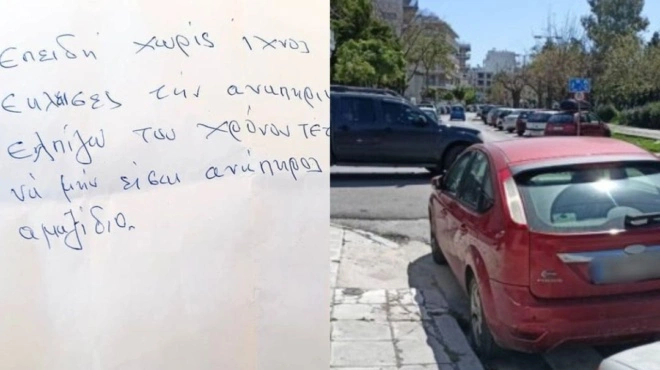 Επειδή χωρίς ίχνος
εκλεισες την αναπηρι
ελπίζω του χρόνου τέτ
νά μήν είσαι ανάπηρος
αμαξίδιο.